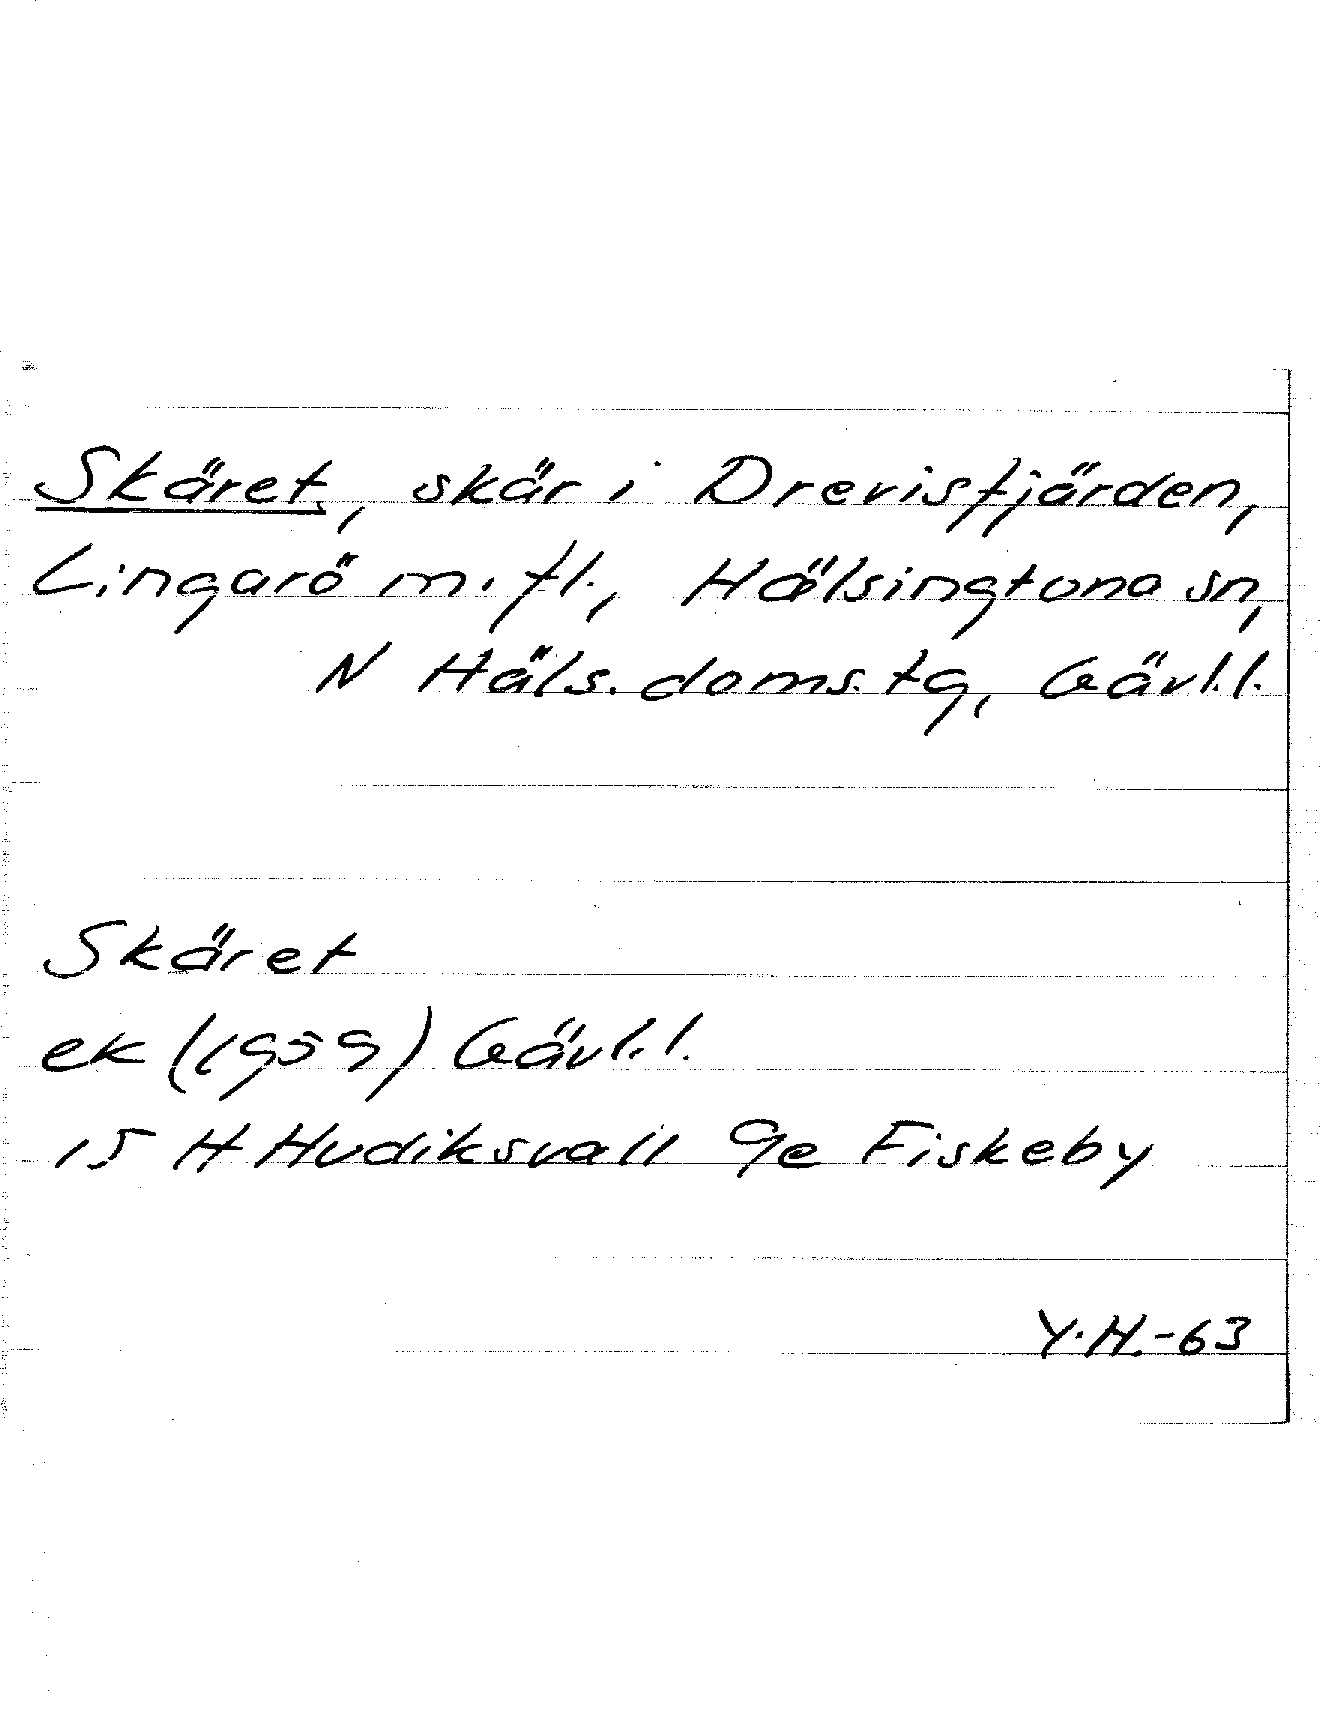 Skäret, skär i Drevisfjärden,
Lingarö m.fl., Hälsingtuna sn,
N Häls. doms. tg, Gävl.l.
Skäret
ek (1959) Gävl.l.
15 H Hudiksvall 9e Fiskeby
Y.H.-63